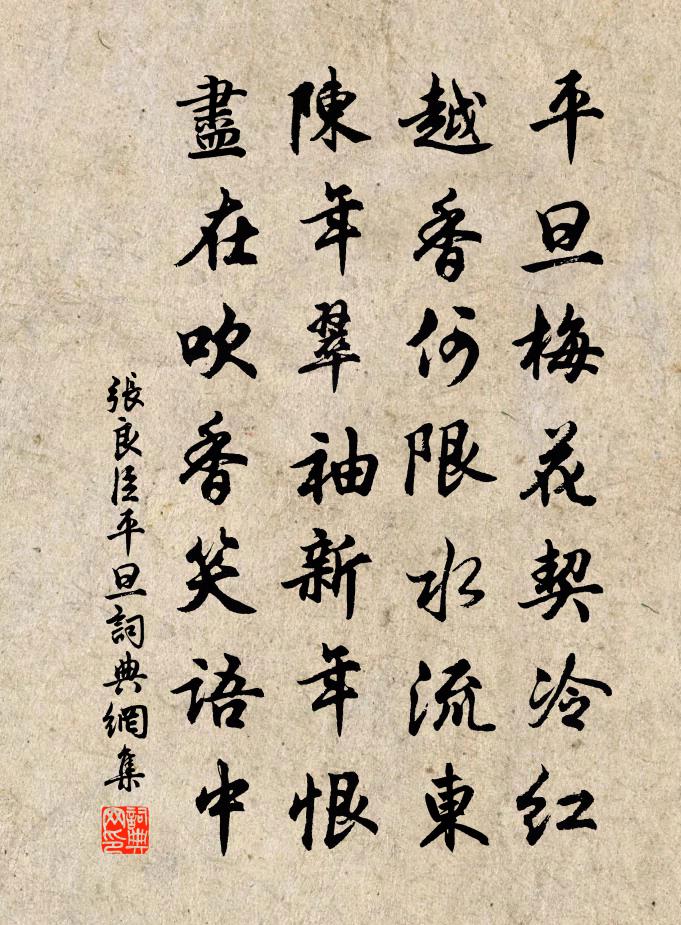 平旦梅花契冷红
越香何限水流東
陳年翠袖新年恨
盡在吹香笑語中
張良臣平旦詞典網集
詞典网印